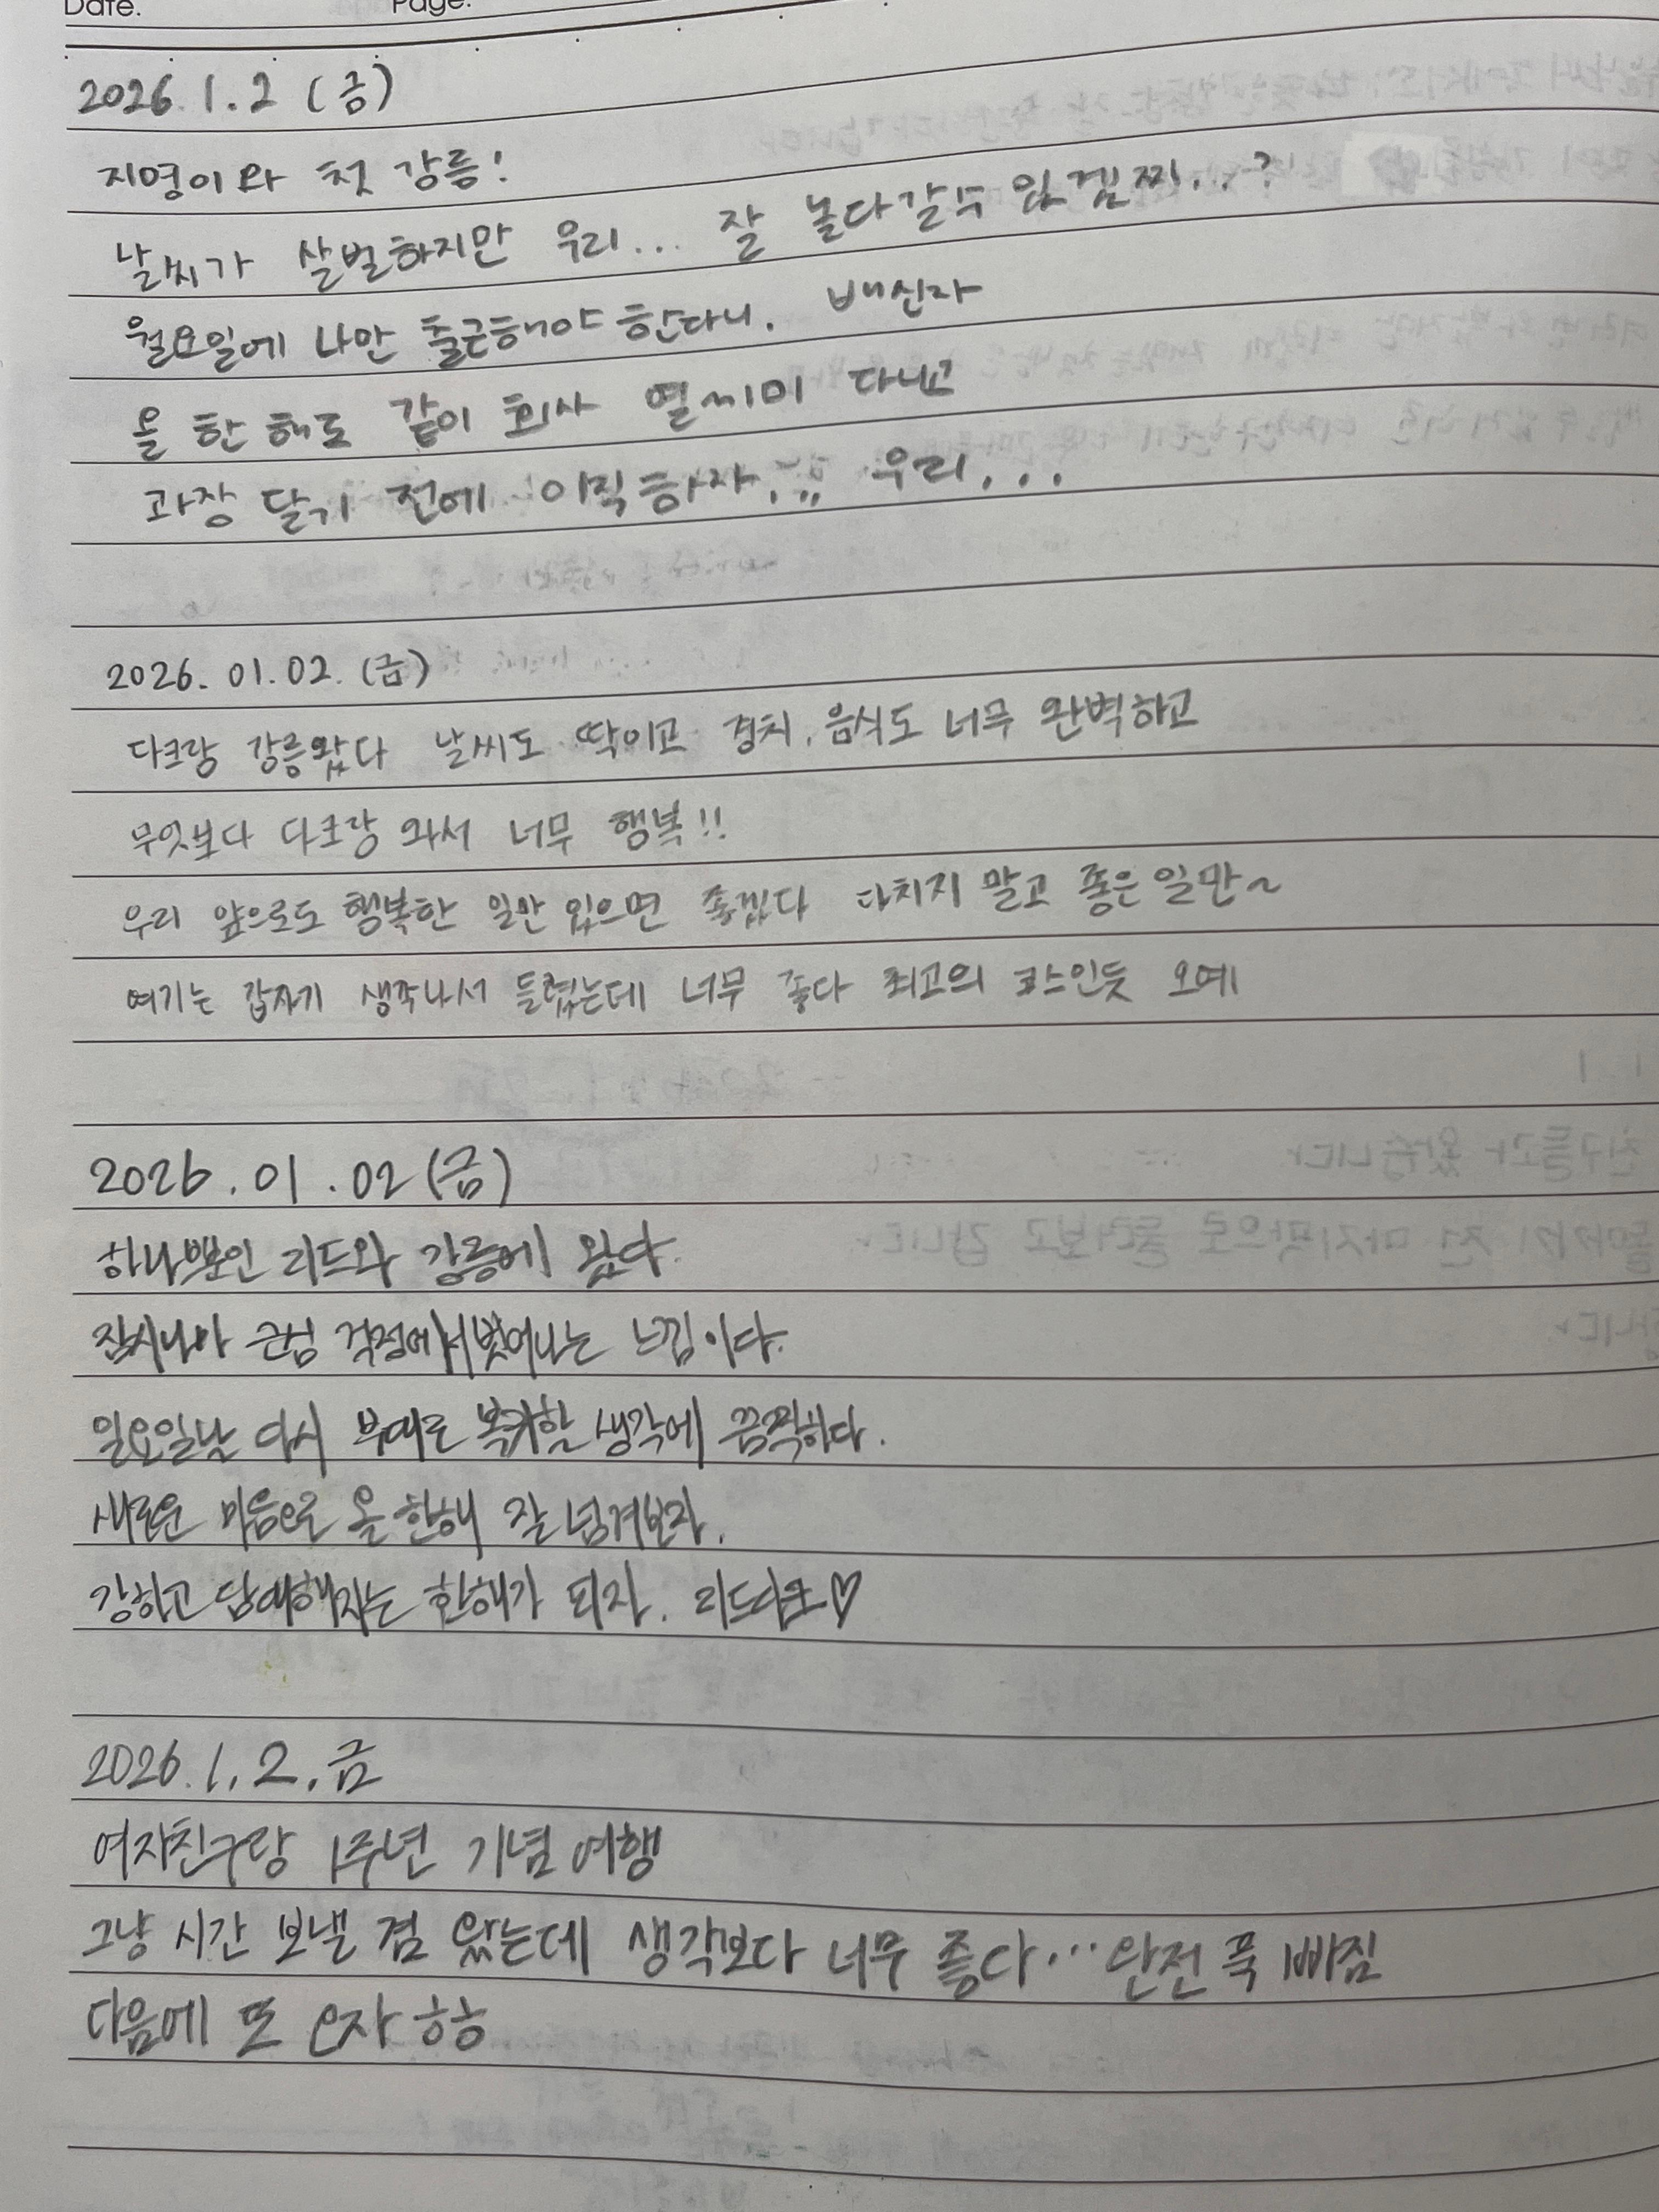 Date. Page.
2026.1.2 (금)
지영이와 첫 강릉!
날씨가 살벌하지만 우리... 잘 놀다갈수 있겠찌...?
월요일에 나만 출근해야 한다니. 배신자
올 한 해도 같이 회사 열씨미 다니고
과장 달기 전에 이직하자.,, 우리...
2026. 01. 02. (금)
다크랑 강릉왔다 날씨도 딱이고 경치, 음식도 너무 완벽하고
무엇보다 다크랑 와서 너무 행복!!
우리 앞으로도 행복한 일만 있으면 좋겠다 다치지 말고 좋은 일만~
여기는 갑자기 생각나서 들렸는데 너무 좋다 최고의 코스인듯 오예
2026. 01. 02 (금)
하나뿐인 리드와 강릉에 왔다.
잠시나마 근심 걱정에서 벗어나는 느낌이다.
일요일날 다시 부대로 복귀할 생각에 끔찍하다.
새로운 마음으로 올 한해 잘 넘겨보자.
강하고 담대해지는 한해가 되자. 리드다크♡
2026. 1. 2. 금
여자친구랑 1주년 기념 여행
그냥 시간 보낼 겸 왔는데 생각보다 너무 좋다... 완전 푹 빠짐
다음에 또 오자 하핳